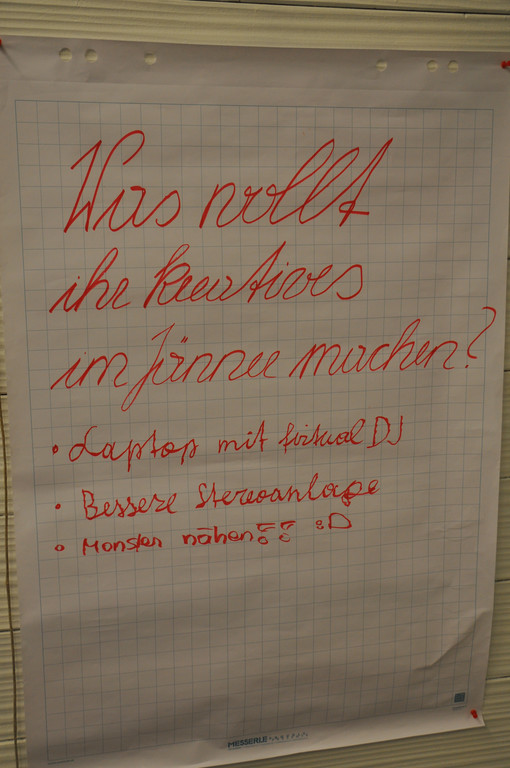 Was wollt
ihr kreatives
im Jänner machen?
• Laptop mit firtual DJ
• Bessere Stereoanlage
• Monster nähen!! :D
MESSERLE